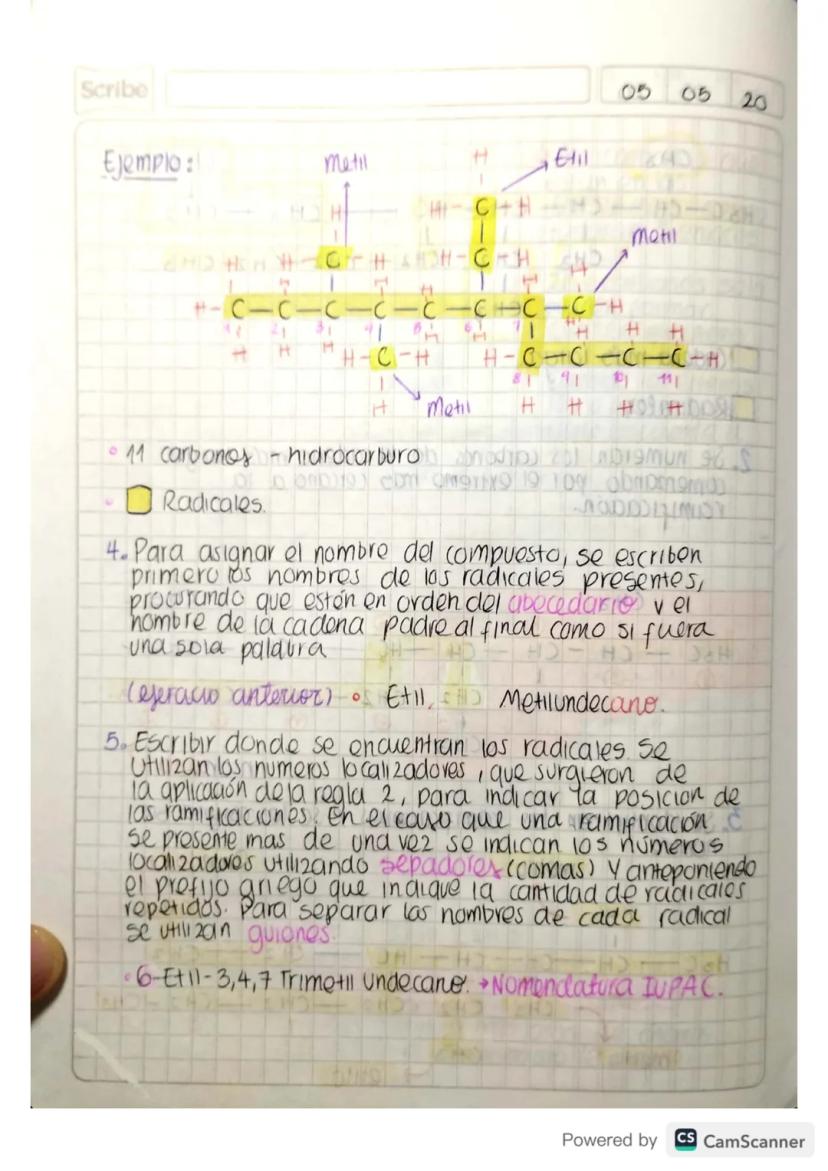 Scribe
05 05 20
Ejemplo:
Metil
H
Etil
H H-C-H
Metil
H H-C-H H-C-H H H
H-C-C-C-C-C-C-C-C-H
1 2 3 4 5 6 7
H H H H-C-H H H H-C-C-C-C-H
8 9 10 11
H Metil H H H H
11 carbonos - hidrocarburo
Radicales.
4. Para asignar el nombre del compuesto, se escriben
primero los nombres de los radicales presentes,
procurando que estén en orden del abecedario y el
nombre de la cadena padre al final como si fuera
una sola palabra
(ejercicio anterior) Etil, Metilundecano.
5. Escribir donde se encuentran los radicales se
utilizan los numeros localizadores, que surgieron de
la aplicación de la regla 2, para indicar la posicion de
las ramificaciones. En el caso que una ramificación
se presente mas de una vez se indican los números
localizadores utilizando sepadores (comas) y anteponiendo
el prefijo griego que indique la cantidad de radicales
repetidos. Para separar los nombres de cada radical
se utilizan guiones.
6-Etil-3,4,7 Trimetil undecano. →Nomenclatura IUPAC.
Powered by CS CamScanner